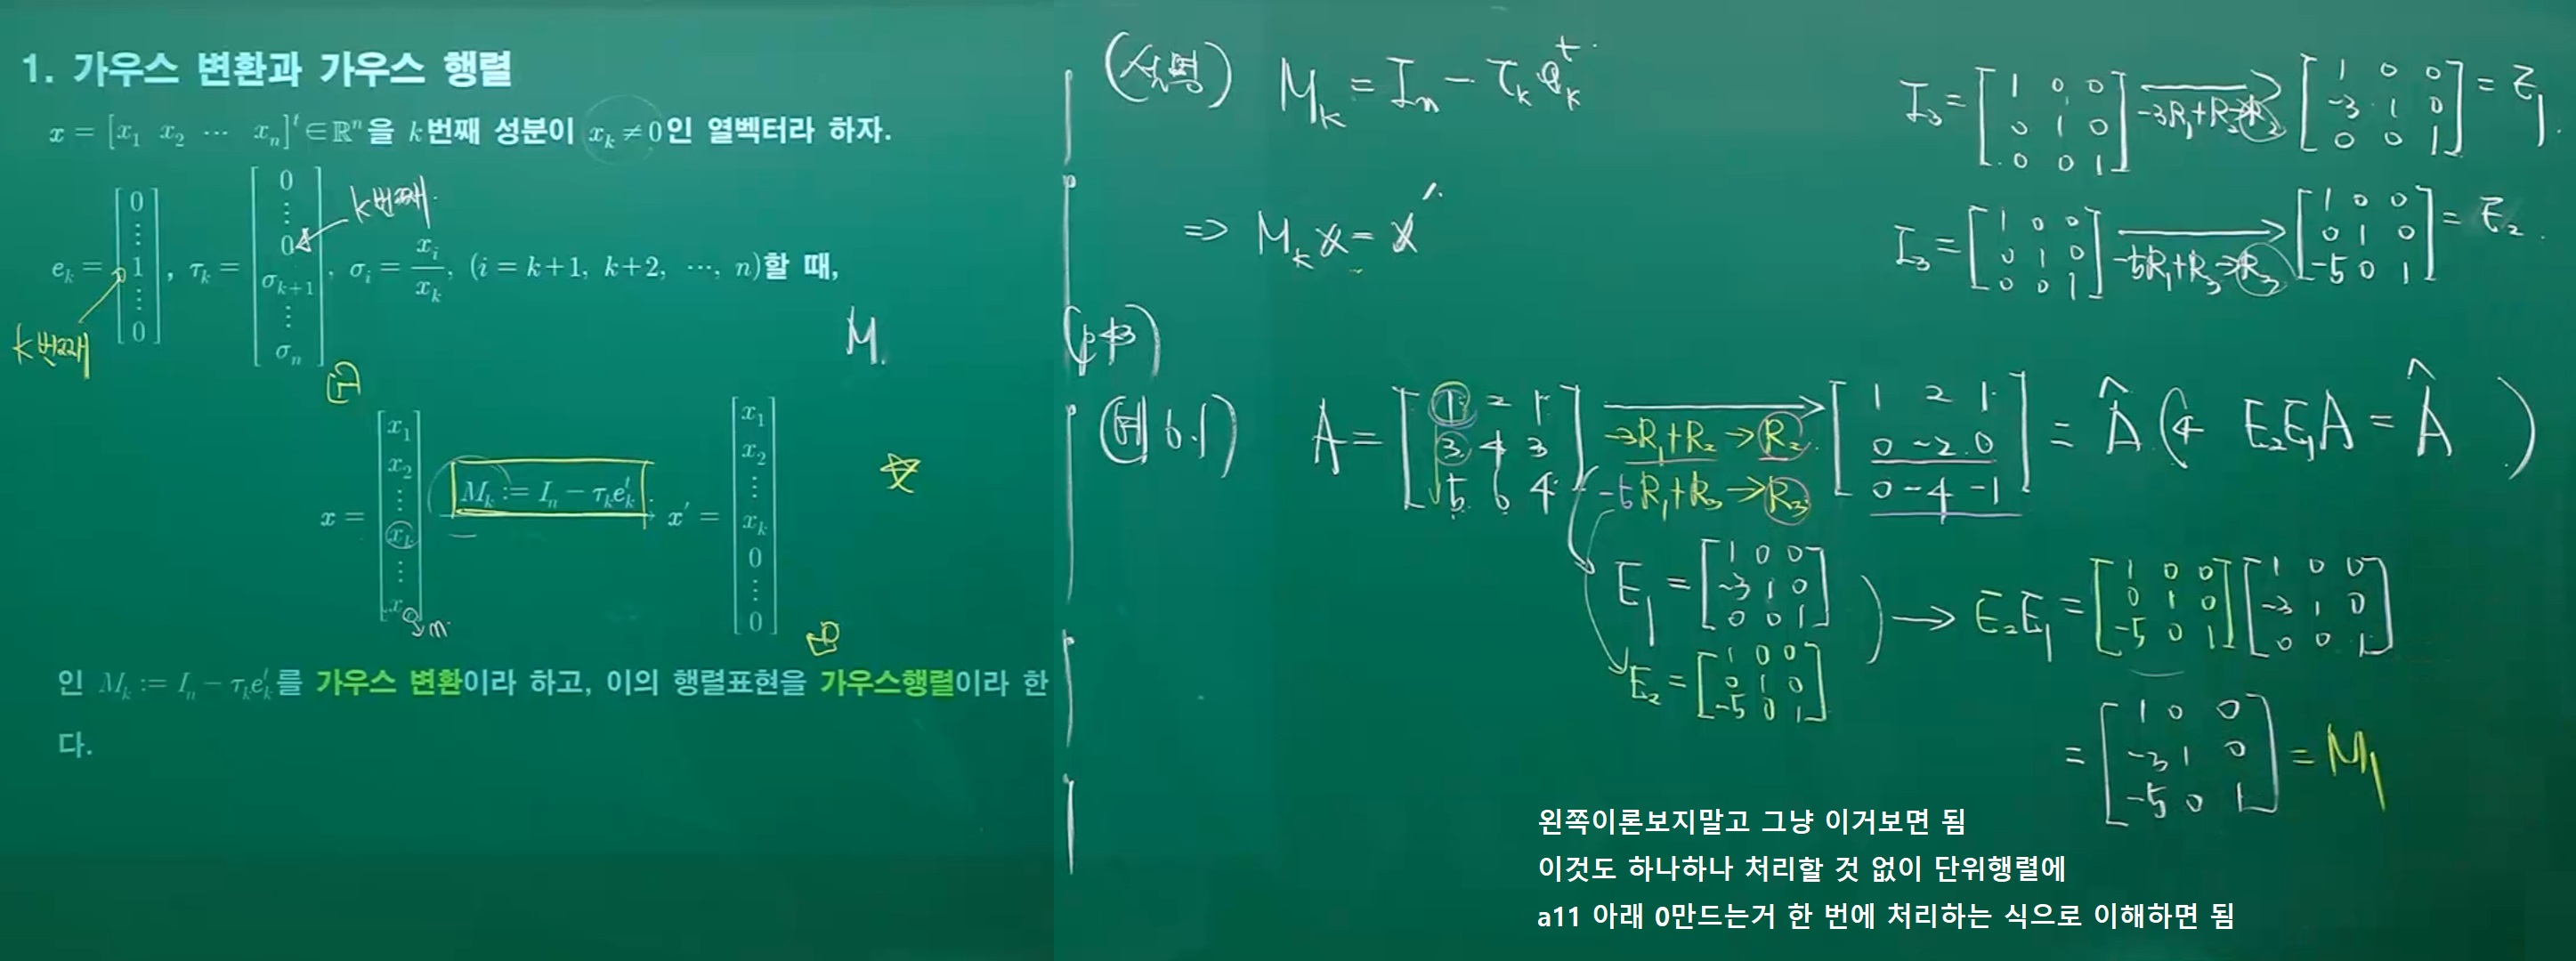 1. 가우스 변환과 가우스 행렬
x = [x₁ x₂ ⋯ xₙ]ᵗ ∈ ℝⁿ을 k번째 성분이 xₖ ≠ 0인 열벡터라 하자.
eₖ = [0 ⋮ 1 ⋮ 0], τₖ = [0 ⋮ 0 σₖ₊₁ ⋮ σₙ], σᵢ = xᵢ/xₖ, (i = k+1, k+2, ⋯, n)할 때,
k번째
k번째
M
x = [x₁ x₂ ⋮ xₖ ⋮ xₙ] Mₖ := Iₙ − τₖeₖᵗ x′ = [x₁ x₂ ⋮ xₖ 0 ⋮ 0]
n
인 Mₖ := Iₙ − τₖeₖᵗ를 가우스 변환이라 하고, 이의 행렬표현을 가우스행렬이라 한
다.
(설명) Mₖ = Iₙ − τₖeₖᵗ
⇒ Mₖx = x′
I₃ = [1 0 0; 0 1 0; 0 0 1] −3R₁+R₂→R₂ [1 0 0; −3 1 0; 0 0 1] = E₁
I₃ = [1 0 0; 0 1 0; 0 0 1] −5R₁+R₃→R₃ [1 0 0; 0 1 0; −5 0 1] = E₂
(예 6.1) A = [1 2 1; 3 4 3; 5 6 4] −3R₁+R₂→R₂ −5R₁+R₃→R₃ [1 2 1; 0 −2 0; 0 −4 −1] = Â (← E₂E₁A = Â)
E₁ = [1 0 0; −3 1 0; 0 0 1]
E₂ = [1 0 0; 0 1 0; −5 0 1]
→ E₂E₁ = [1 0 0; 0 1 0; −5 0 1] [1 0 0; −3 1 0; 0 0 1]
= [1 0 0; −3 1 0; −5 0 1] = M₁
왼쪽이론보지말고 그냥 이거보면 됨
이것도 하나하나 처리할 것 없이 단위행렬에
a11 아래 0만드는거 한 번에 처리하는 식으로 이해하면 됨